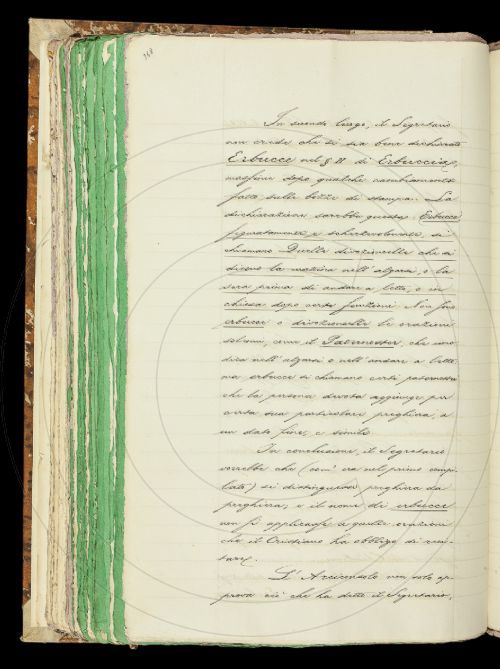 168
In secondo luogo, il Segretario
non crede che si sia bene dichiarato
Erbucce nel § II di Erbuccia,
massime dopo qualche cambiamento
fatto sulle bozze di stampa. La
dichiarazione sarebbe questa: Erbucce
figuratamente e scherzevolmente, si
chiamano Quelle divozioncelle che si
dicono la mattina nell'alzarsi, o la
sera prima di andare a letto, o in
chiesa dopo certe funzioni. Non sono
erbucce o divozioncelle le orazioni
solenni, come il Paternoster, che uno
dica nell'alzarsi o nell'andare a letto
ma erbucce si chiamano certi paternostri
che la persona devota aggiunge per
certa sua particolare preghiera, a
un dato fine, e simile.
In conclusione, il Segretario
vorrebbe che (com'era nel primo compi-
lato) si distinguesse preghiera da
preghiera, e il nome di erbucce
non si applicasse a quelle orazioni
che il Cristiano ha obbligo di reci-
tare.
L'Arciconsolo non solo ap-
prova ciò che ha detto il Segretario,